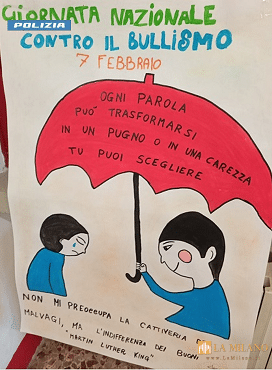 GIORNATA NAZIONALE
POLIZIA
CONTRO IL BULLISMO
7 FEBBRAIO
OGNI PAROLA
PUÒ TRASFORMARSI
IN UN PUGNO O IN UNA CAREZZA
TU PUOI SCEGLIERE
NON MI PREOCCUPA LA CATTIVERIA DEI
MALVAGI, MA L'INDIFFERENZA DEI BUONI
"MARTIN LUTHER KING"
LA MILANO